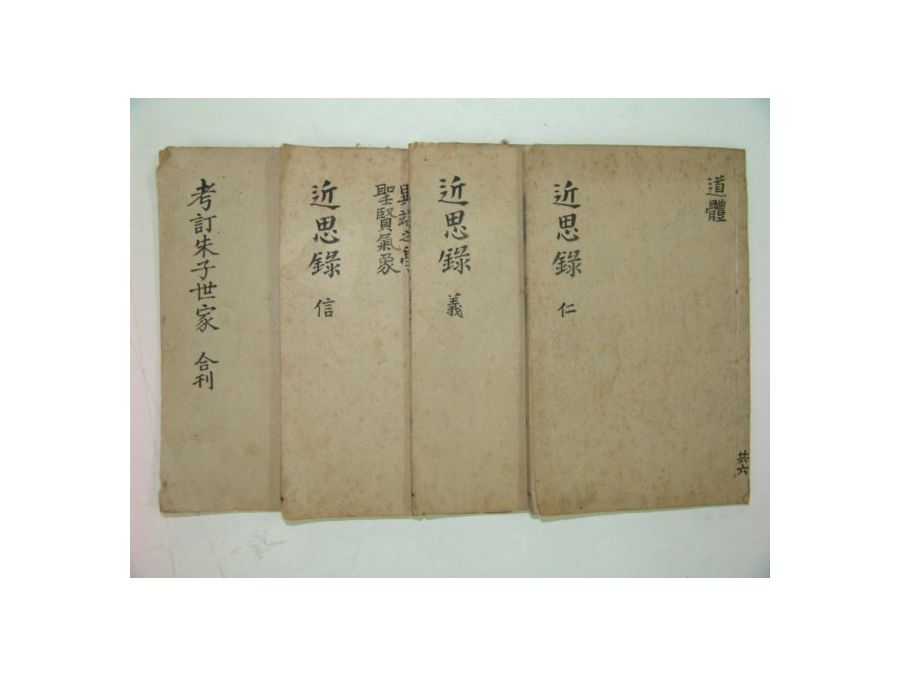 道體
近思錄 仁
共六
近思錄 義
異端之學
聖賢氣象
近思錄 信
考訂朱子世家 合刊